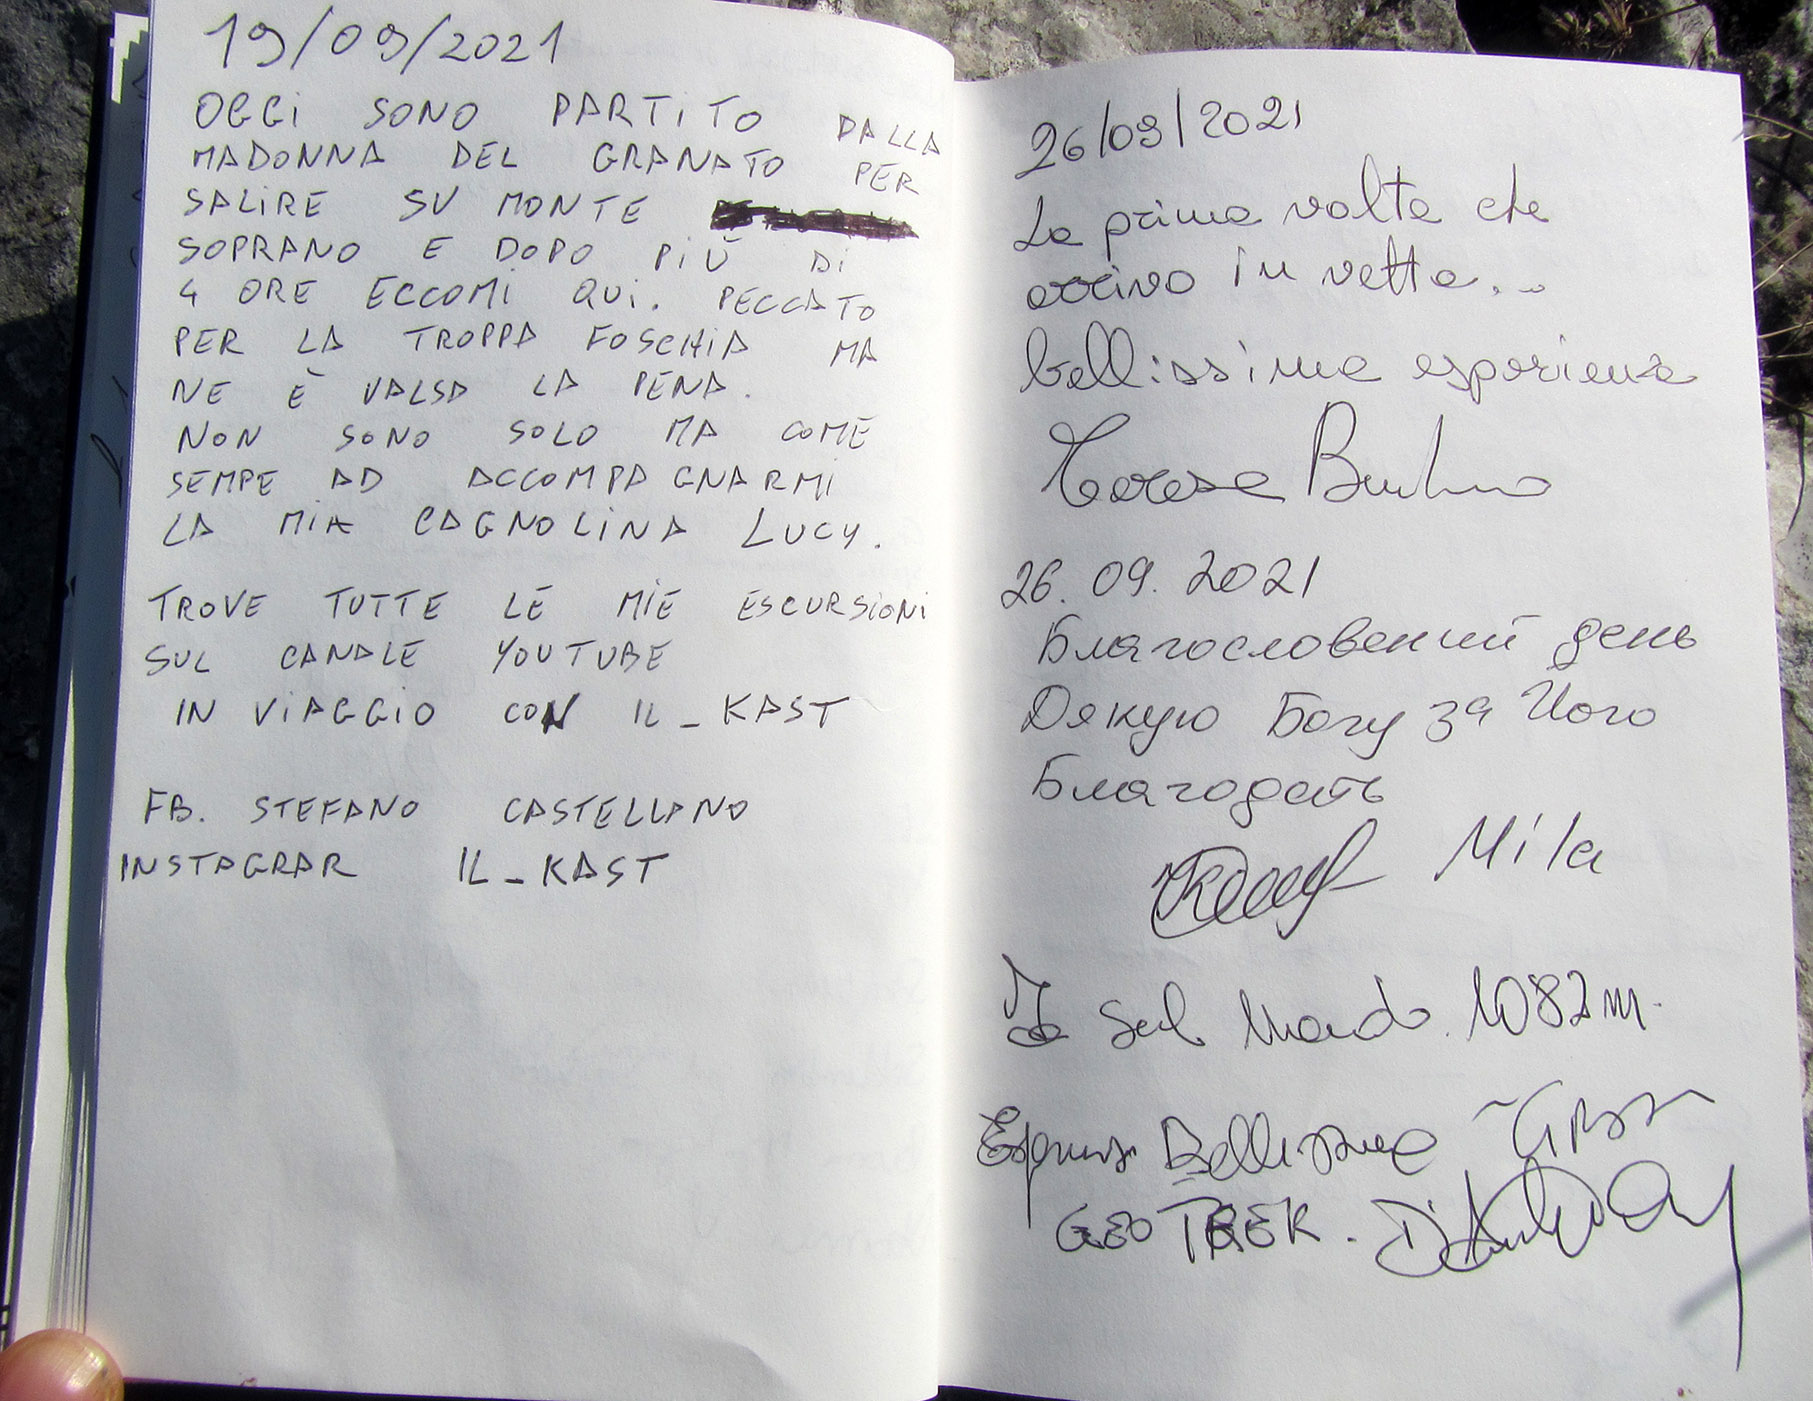 19/09/2021
OGGI SONO PARTITO DALLA
MADONNA DEL GRANATO PER
SALIRE SU MONTE
SOPRANO E DOPO PIÙ DI
4 ORE ECCOMI QUI. PECCATO
PER LA TROPPA FOSCHIA MA
NE È VALSA LA PENA.
NON SONO SOLO MA COME
SEMPE AD ACCOMPAGNARMI
LA MIA CAGNOLINA LUCY.
TROVE TUTTE LE MIE ESCURSIONI
SUL CANALE YOUTUBE
IN VIAGGIO CON IL_KAST
FB. STEFANO CASTELLANO
INSTAGRAR IL_KAST
26/09/2021
La prima volta che
arrivo in vetta...
bellissima esperienza
Teresa
26.09.2021
Благословений день
Дякую Богу за Його
Благодать
Mila
sul 1082 m.
GEO TREK.